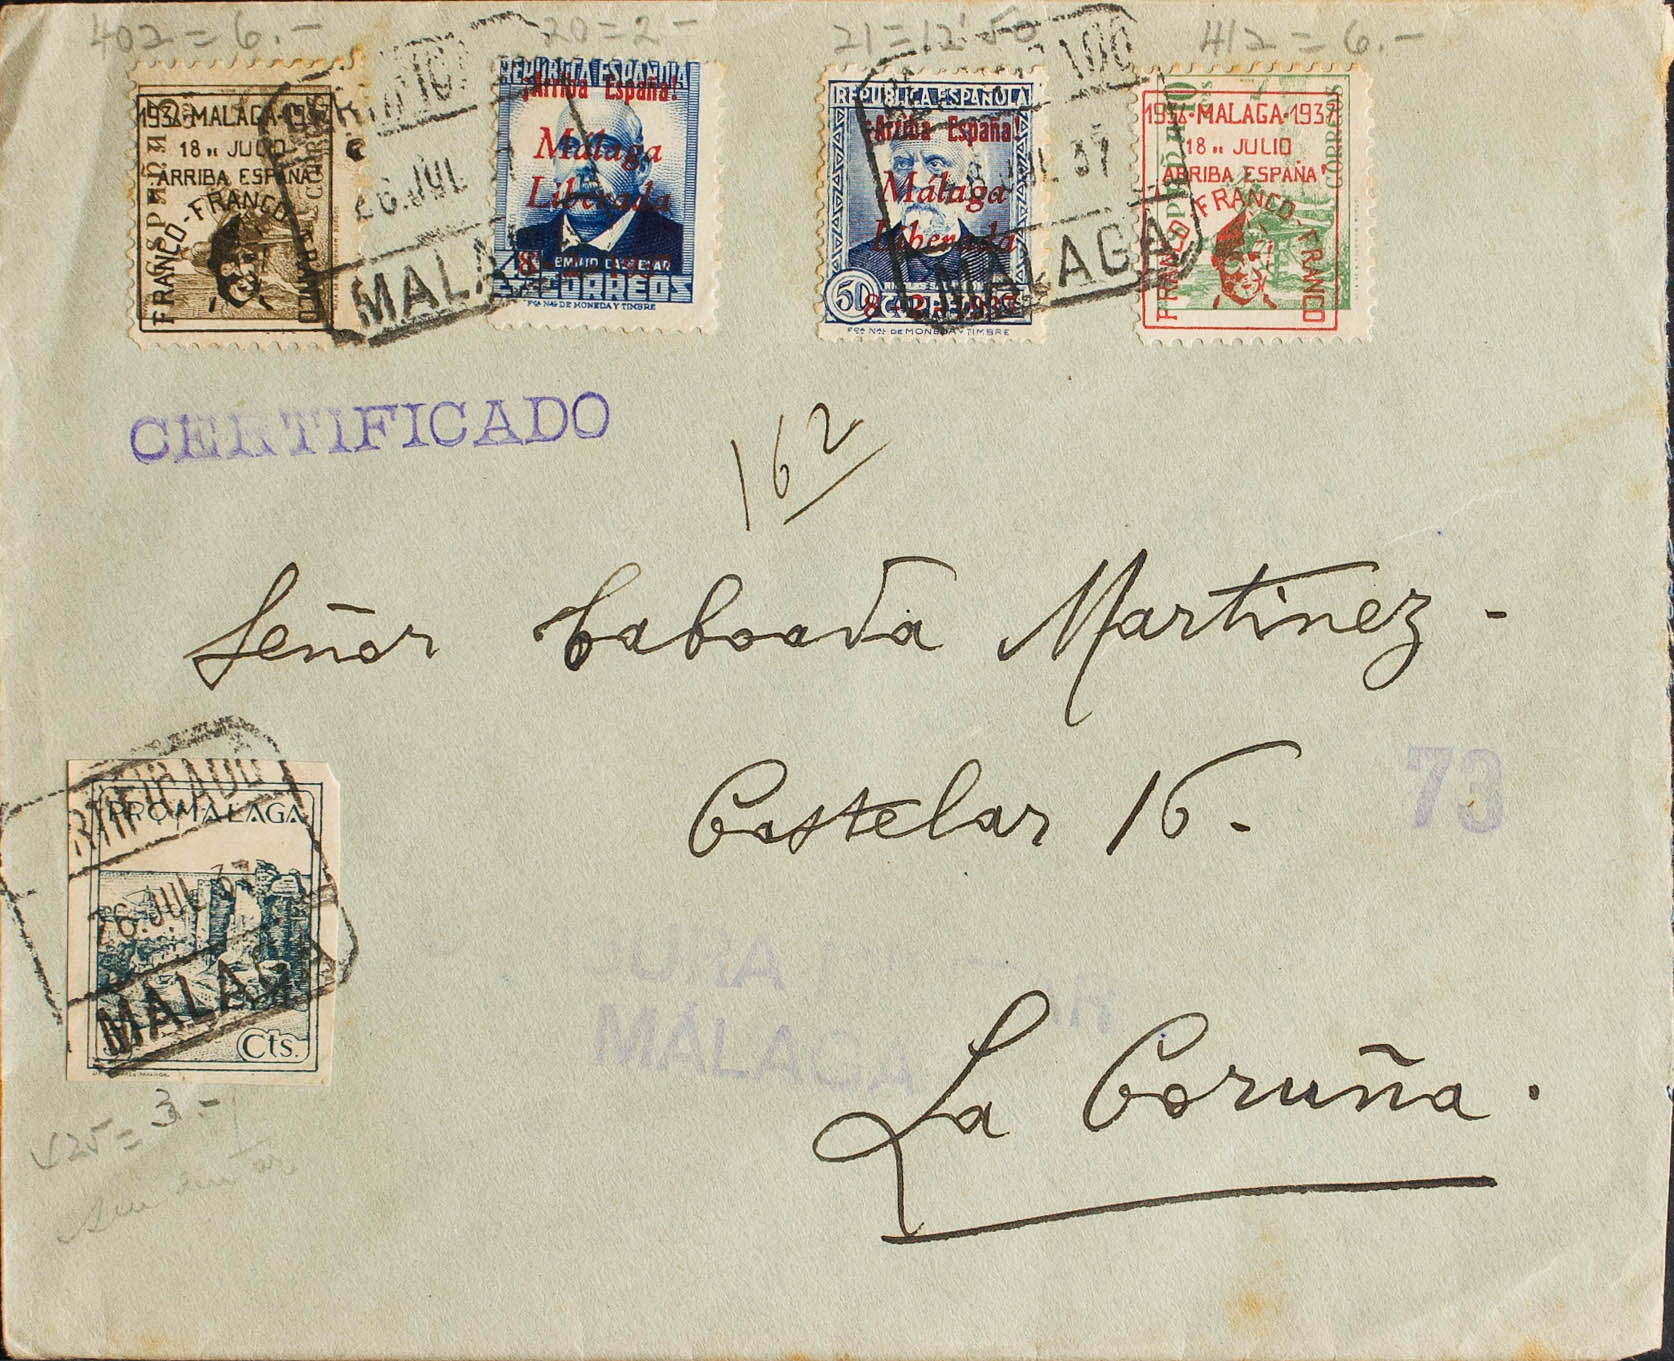 402 = 6.-
20 = 2 -
21 = 12'50
412 = 6. -
1936·MALAGA·1937
18 „ JULIO
ARRIBA ESPAÑA!
FRANCO-FRANCO-FRANCO
ESPAÑA
CORREOS
REPUBLICA ESPAÑOLA
¡Arriba España!
Málaga
Liberada
8 - 2 - 1937
EMILIO CASTELAR
CORREOS
Fca Nal DE MONEDA Y TIMBRE
REPUBLICA ESPAÑOLA
¡Arriba España!
Málaga
Liberada
8 - 2 - 1937
50
CORREOS
Fca Nal DE MONEDA Y TIMBRE
1936·MALAGA·1937
18 „ JULIO
ARRIBA ESPAÑA!
FRANCO-FRANCO-FRANCO
10
CTS
ESPAÑA
CORREOS
26.JUL
MALAGA
JUL 37
MALAGA
CERTIFICADO
162
Señor Taboada Martinez -
Castelar 16 -
73
La Coruña.
CERTIFICADO
26.JUL 37
MALAGA
PRO MALAGA
5 Cts.
CENSURA MILITAR
MÁLAGA
425 = 3.-